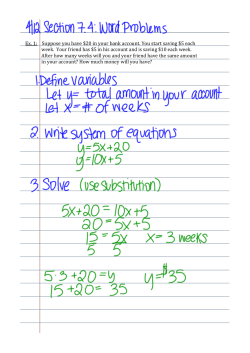 4/12 Section 7.4: Word Problems
Ex. 1: Suppose you have $20 in your bank account. You start saving $5 each
week. Your friend has $5 in his account and is saving $10 each week.
After how many weeks will you and your friend have the same amount
in your account? How much money will you have?
1. Define variables
Let y= total amount in your account
Let x= # of weeks
2. Write system of equations
y=5x+20
y=10x+5
3. Solve (use substitution)
5x+20=10x+5
20=5x+5
15=5x x=3 weeks
5 5
5·3+20=y y=$35
15+20= 35